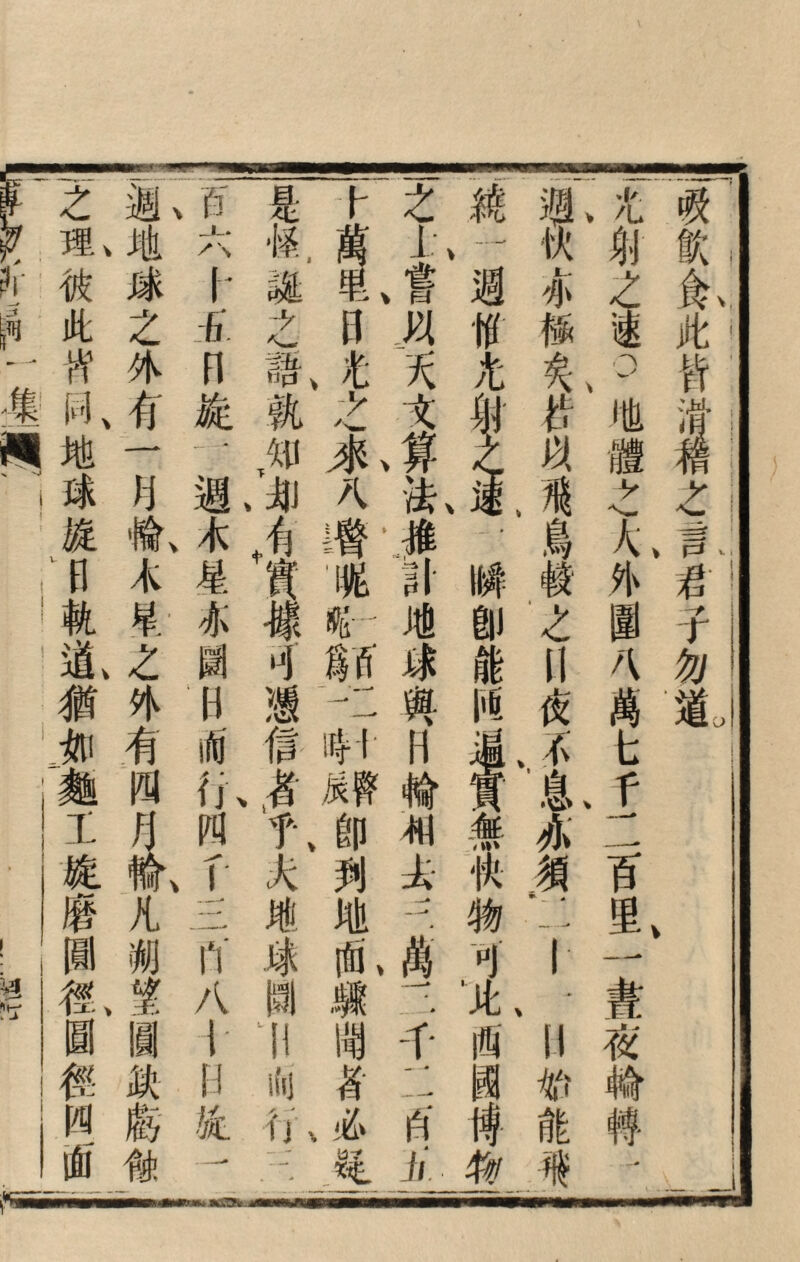 吸飲食、此皆滑稽之言、君子勿道。
光射之速○地體之大、外圍八萬七千二百里、一晝夜輪轉一
週、快亦極矣、若以飛鳥較之日夜不息、亦須二十一日始能飛
繞一週惟光射之速、一瞬卽能匝遍、實無快物可比、西國博物
之士、嘗以天文算法、推計地球與日輪相去三萬三千二百五
十萬里、日光之來、八㫮昵一百二十㫮昵爲一時辰卽到地面、驟聞者必疑
是怪誕之語、孰知却有實據可憑信者乎、夫地球圜日而行、三
百六十五日旋一週、木星亦圜日而行、四千三百八十日旋一
週、地球之外有一月輪、木星之外有四月輪、凡朔望圓缺虧蝕
之理、彼此皆同、地球旋日軌道、猶如麵工旋磨圓徑、圓徑四面
博物新編一集